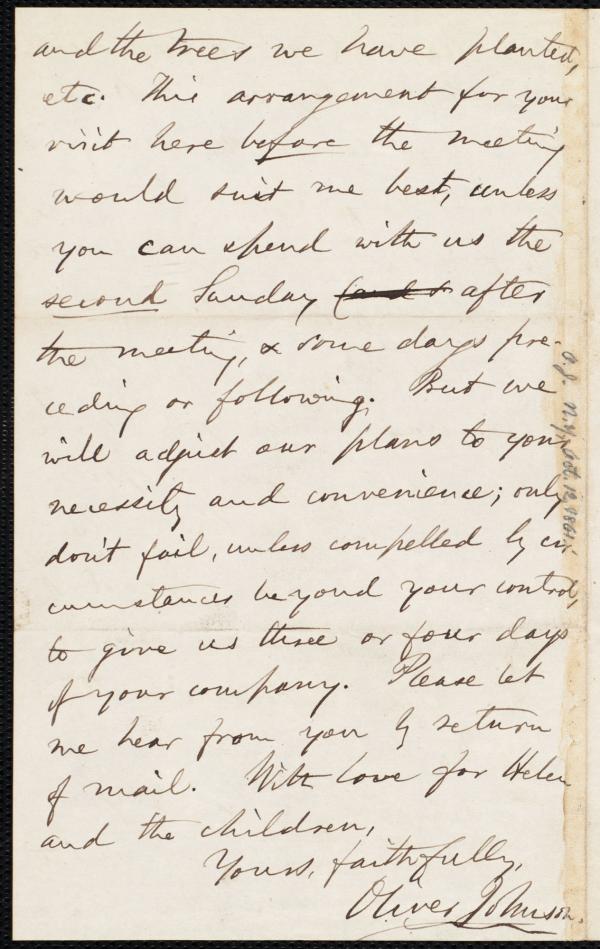 and the trees we have planted,
etc. This arrangement for your
visit here before the meeting
would suit me best, unless
you can spend with us the
second Sunday after
the meeting, & some days pre-
ceding or following. But we
will adjust our plans to your
necessity and convenience; only
don't fail, unless compelled by cir-
cumstances beyond your control,
to give us three or four days
of your company. Please let
me hear from you by return
of mail. With love for Helen
and the children,
Yours, faithfully,
Oliver Johnson.
O.J. N.Y. Oct. 12, 1861.